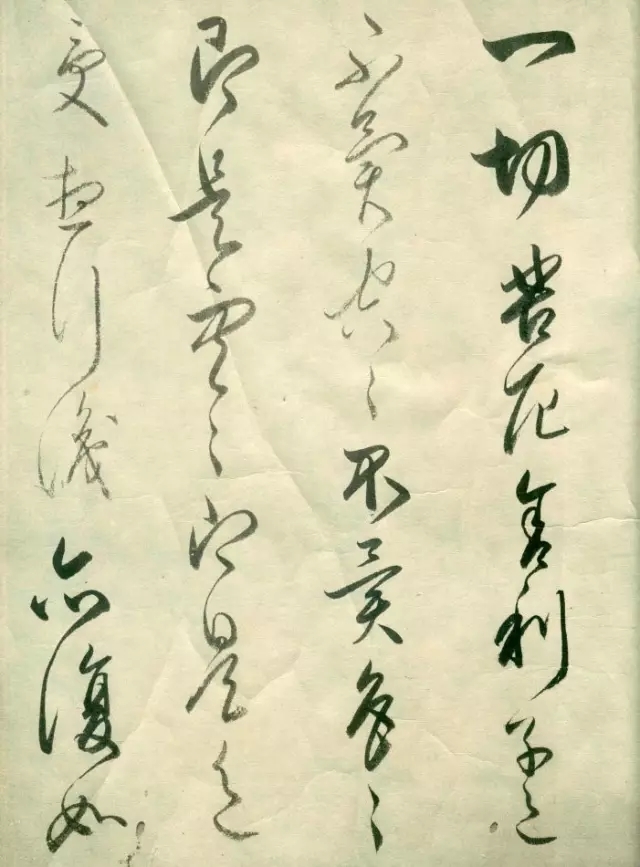 一切苦厄舍利子色
不異空々不異色々
即是空々即是色
受想行識亦復如